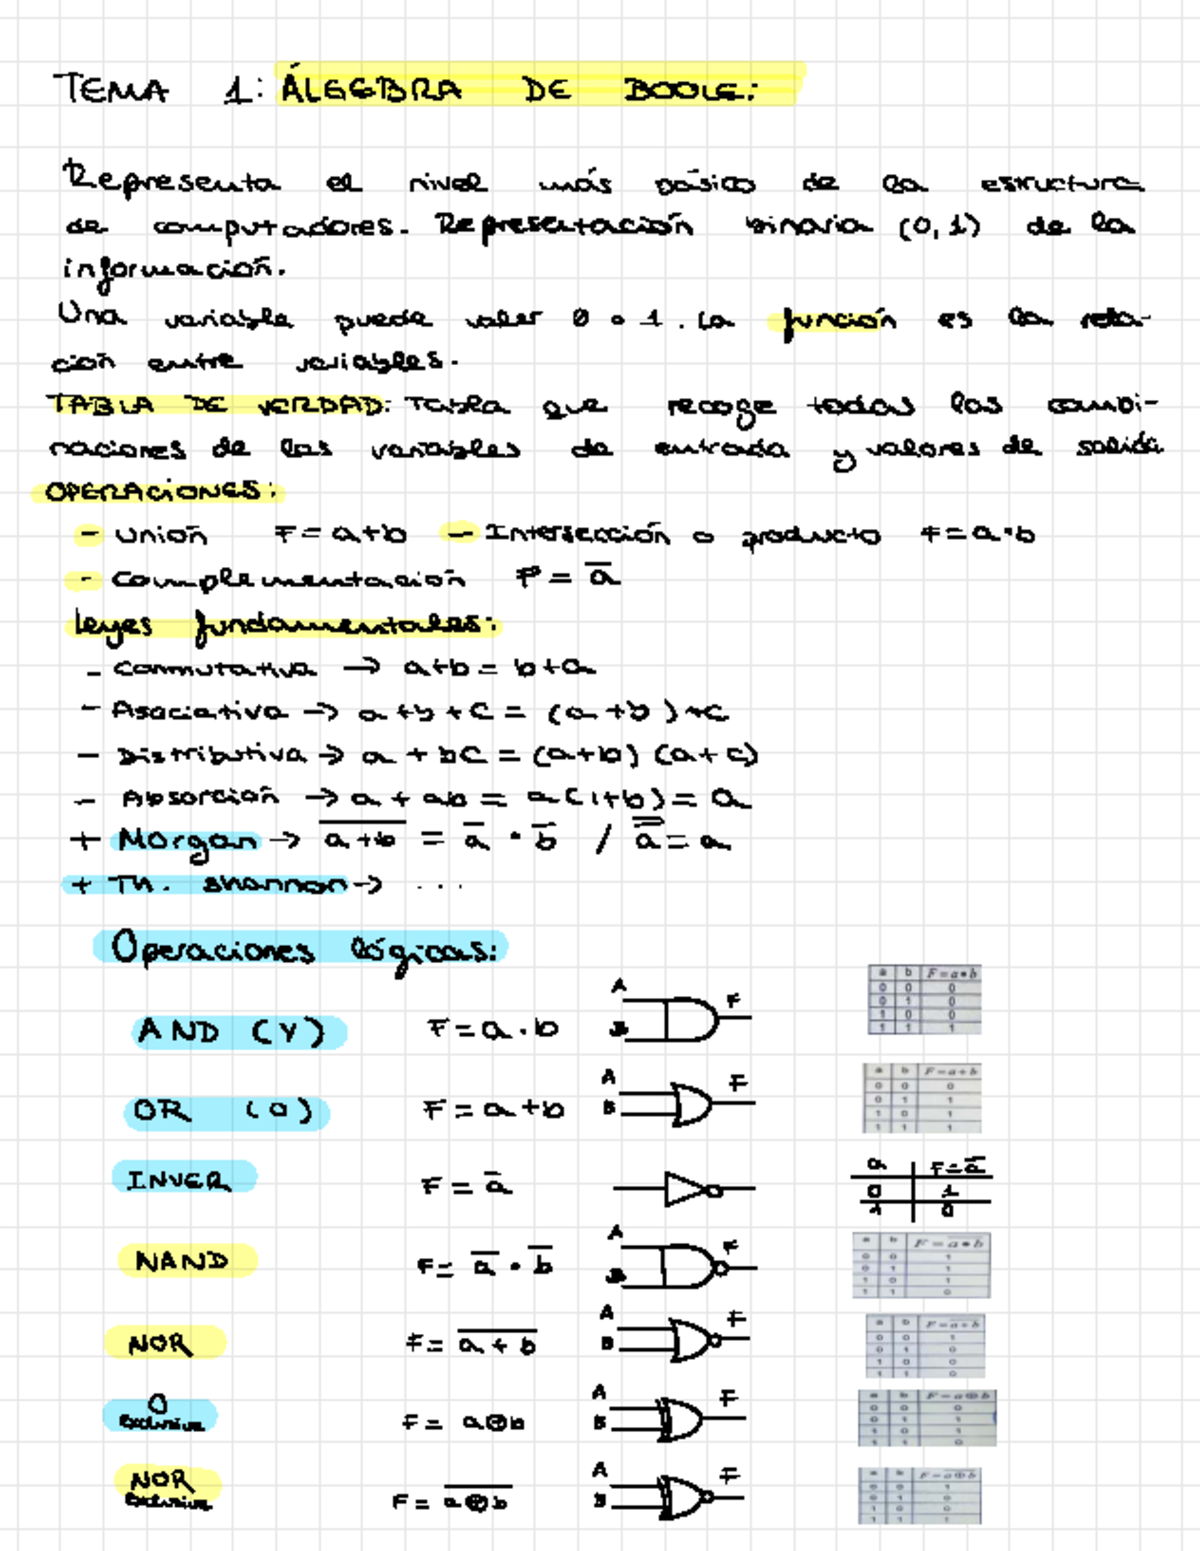 TEMA 1: ÁLGEBRA DE BOOLE:
Representa el nivel más básico de la estructura
de computadores. Representación binaria (0,1) de la
información.
Una variable puede valer 0 o 1. La función es la rela-
ción entre variables.
TABLA DE VERDAD: Tabla que recoge todas las combi-
naciones de las variables de entrada y valores de salida
OPERACIONES:
- Unión F = a+b - Intersección o producto F = a·b
- Complementación F = a̅
Leyes fundamentales:
- Conmutativa → a+b = b+a
- Asociativa → a+b+c = (a+b)+c
- Distributiva → a + bc = (a+b) (a+c)
- Absorción → a + ab = a(1+b) = a
+ Morgan → \overline{a+b} = a̅ · b̅ / a̿ = a
+ Th. Shannon → ...
Operaciones lógicas:
a b F=a•b
0 0 0
0 1 0
1 0 0
1 1 1
AND (Y) F = a·b A B F
a b F=a+b
0 0 0
0 1 1
1 0 1
1 1 1
OR (O) F = a+b A B F
INVER F = a̅
a F=a̅
0 1
1 0
NAND F = a̅ · b̅ A B F
a b F=\overline{a•b}
0 0 1
0 1 1
1 0 1
1 1 0
NOR F = \overline{a+b} A B F
a b F=\overline{a+b}
0 0 1
0 1 0
1 0 0
1 1 0
O Exclusiva F = a⊕b A B F
a b F=a⊕b
0 0 0
0 1 1
1 0 1
1 1 0
NOR Exclusiva F = \overline{a⊕b} A B F
a b F=\overline{a⊕b}
0 0 1
0 1 0
1 0 0
1 1 1